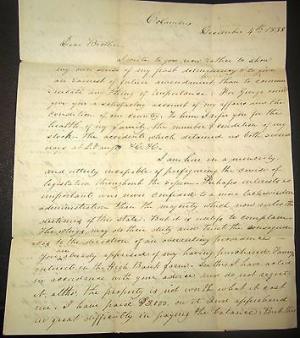 Columbus
December 4th 1838
Dear Brother
I write to you now rather to show
my own sense of my past delinquency & to give
an earnest of future amendment than to commu-
nicate any thing of importance. For George could
give you a satisfactory account of my affairs and the
condition of our country. To him I refer you for the
health of my family, the number & condition of my
stock. The accidents which detained us both several
days at
I am here in a minority
and utterly incapable of the course of
legislation throughout the session. Perhaps interests so
important were never exposed to a more
administration than the majority which now rules the
of this state. But it is useless to complain.
The whigs may do their duty and trust the consequen-
ces to the direction of an overruling providence
You are already apprised of my having purchased
interest in the High Bank farm. In this I have acted
in accordance with your advice and do not regret
it, altho the property is not worth what it cost
me. I have paid $3000 on it and apprehend
no great difficulty in paying the balance. But this